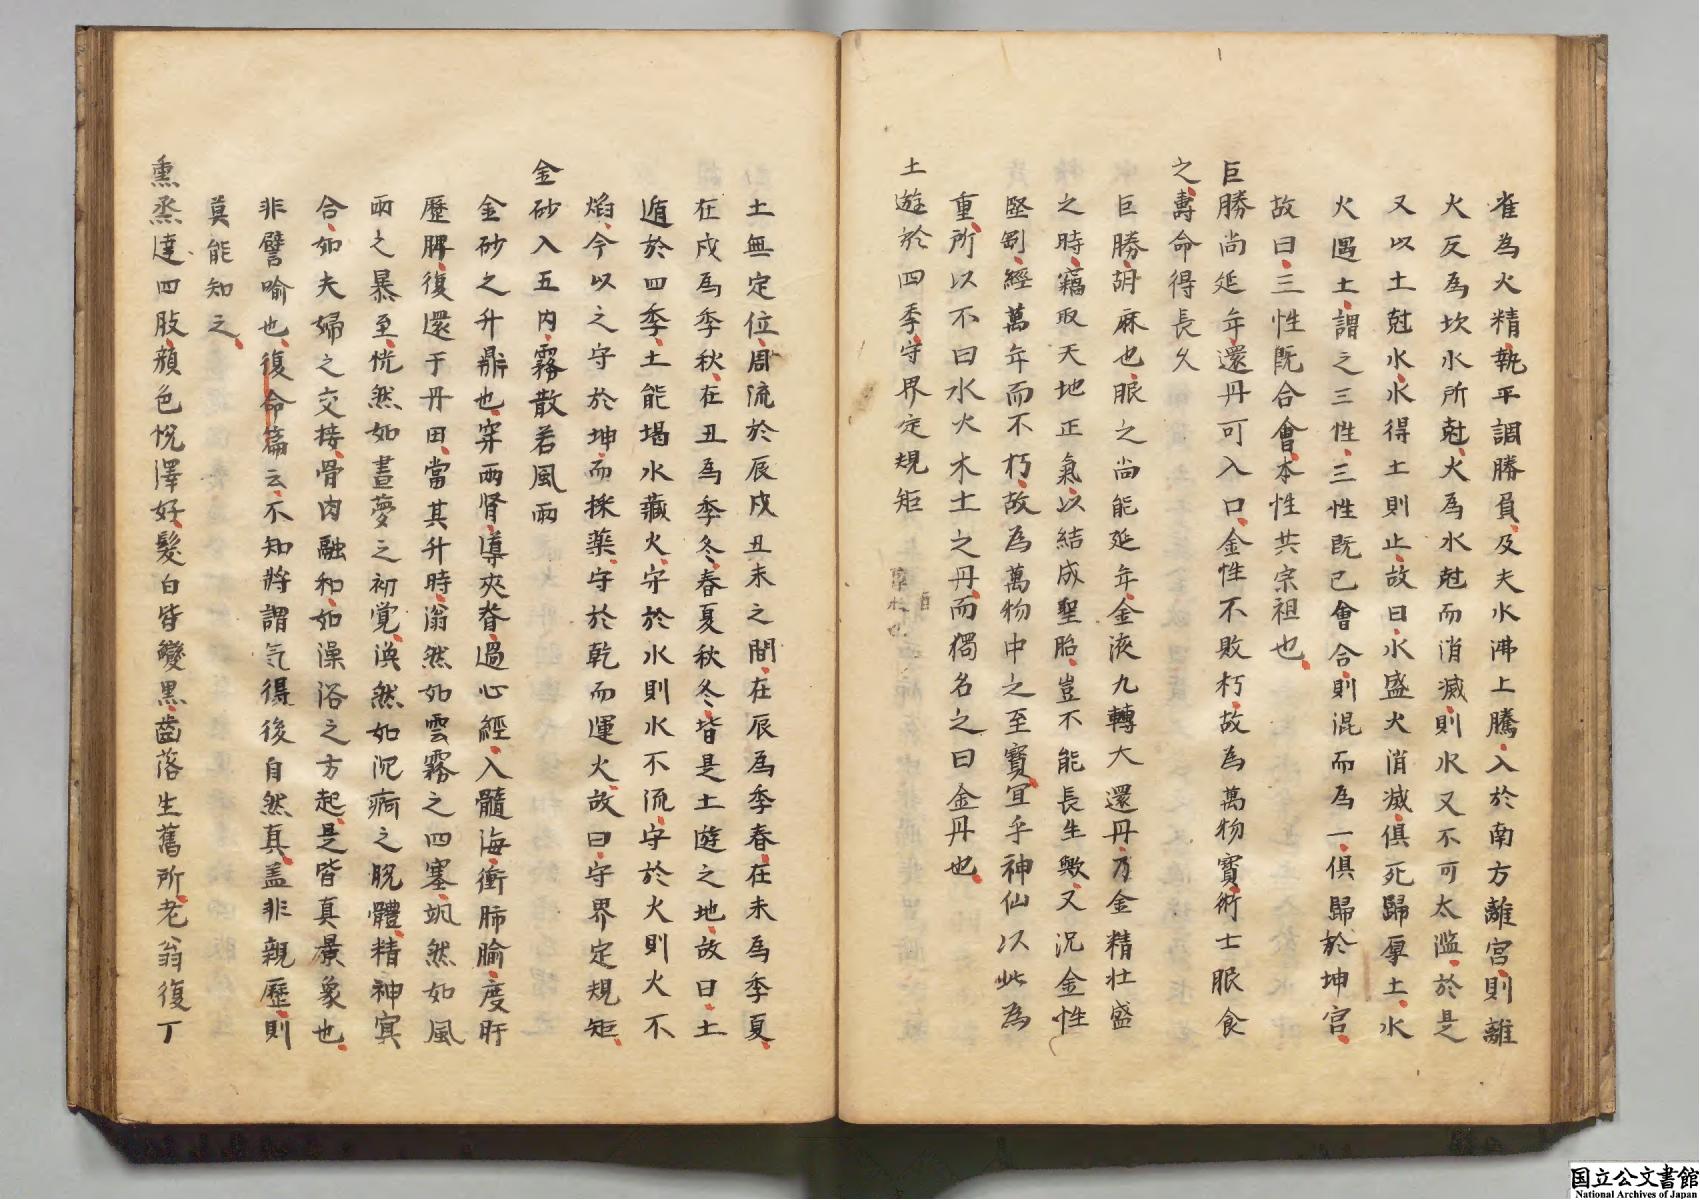 雀為火精執平調勝負及夫水沸上騰入於南方離宮則離
火反為坎水所尅火為水尅而消滅則水又不可太濫於是
又以土尅水水得土則止故曰水盛火消滅俱死歸厚土水
火遇土謂之三性三性既已會合則混而為一俱歸於坤宮
故曰三性既合會本性共宗祖也
巨勝尚延年還丹可入口金性不敗朽故為萬物寳術士服食
之壽命得長久
巨勝胡麻也服之尚能延年金液九轉大還丹乃金精壯盛
之時竊取天地正氣以結成聖胎豈不能長生歟又況金性
堅剛經萬年而不朽故為萬物中之至寳宜乎神仙以此為
重所以不曰水火木土之丹而獨名之曰金丹也
土遊於四季守界定規矩
土無定位周流於辰戌丑未之間在辰為季春在未為季夏
在戌為季秋在丑為季冬春夏秋冬皆是土遊之地故曰土
遊於四季土能堨水藏火守於水則水不流守於火則火不
焰今以之守於坤而採藥守於乾而運火故曰守界定規矩
金砂入五内霧散若風雨
金砂之升鼎也穿兩腎導夾脊過心經入髓海衝肺腧度肝
歷脾復還于丹田當其升時滃然如雲霧之四塞颯然如風
雨之暴至恍然如晝夢之初覺渙然如沉痾之脫體精神冥
合如夫婦之交接骨肉融和如澡浴之方起是皆真景象也
非譬喻也復命篇云不知將謂気得後自然真盖非親歷則
莫能知之
熏烝達四肢顏色悅澤好髮白皆變黒齒落生舊所老翁復丁
国立公文書館
National Archives of Japan